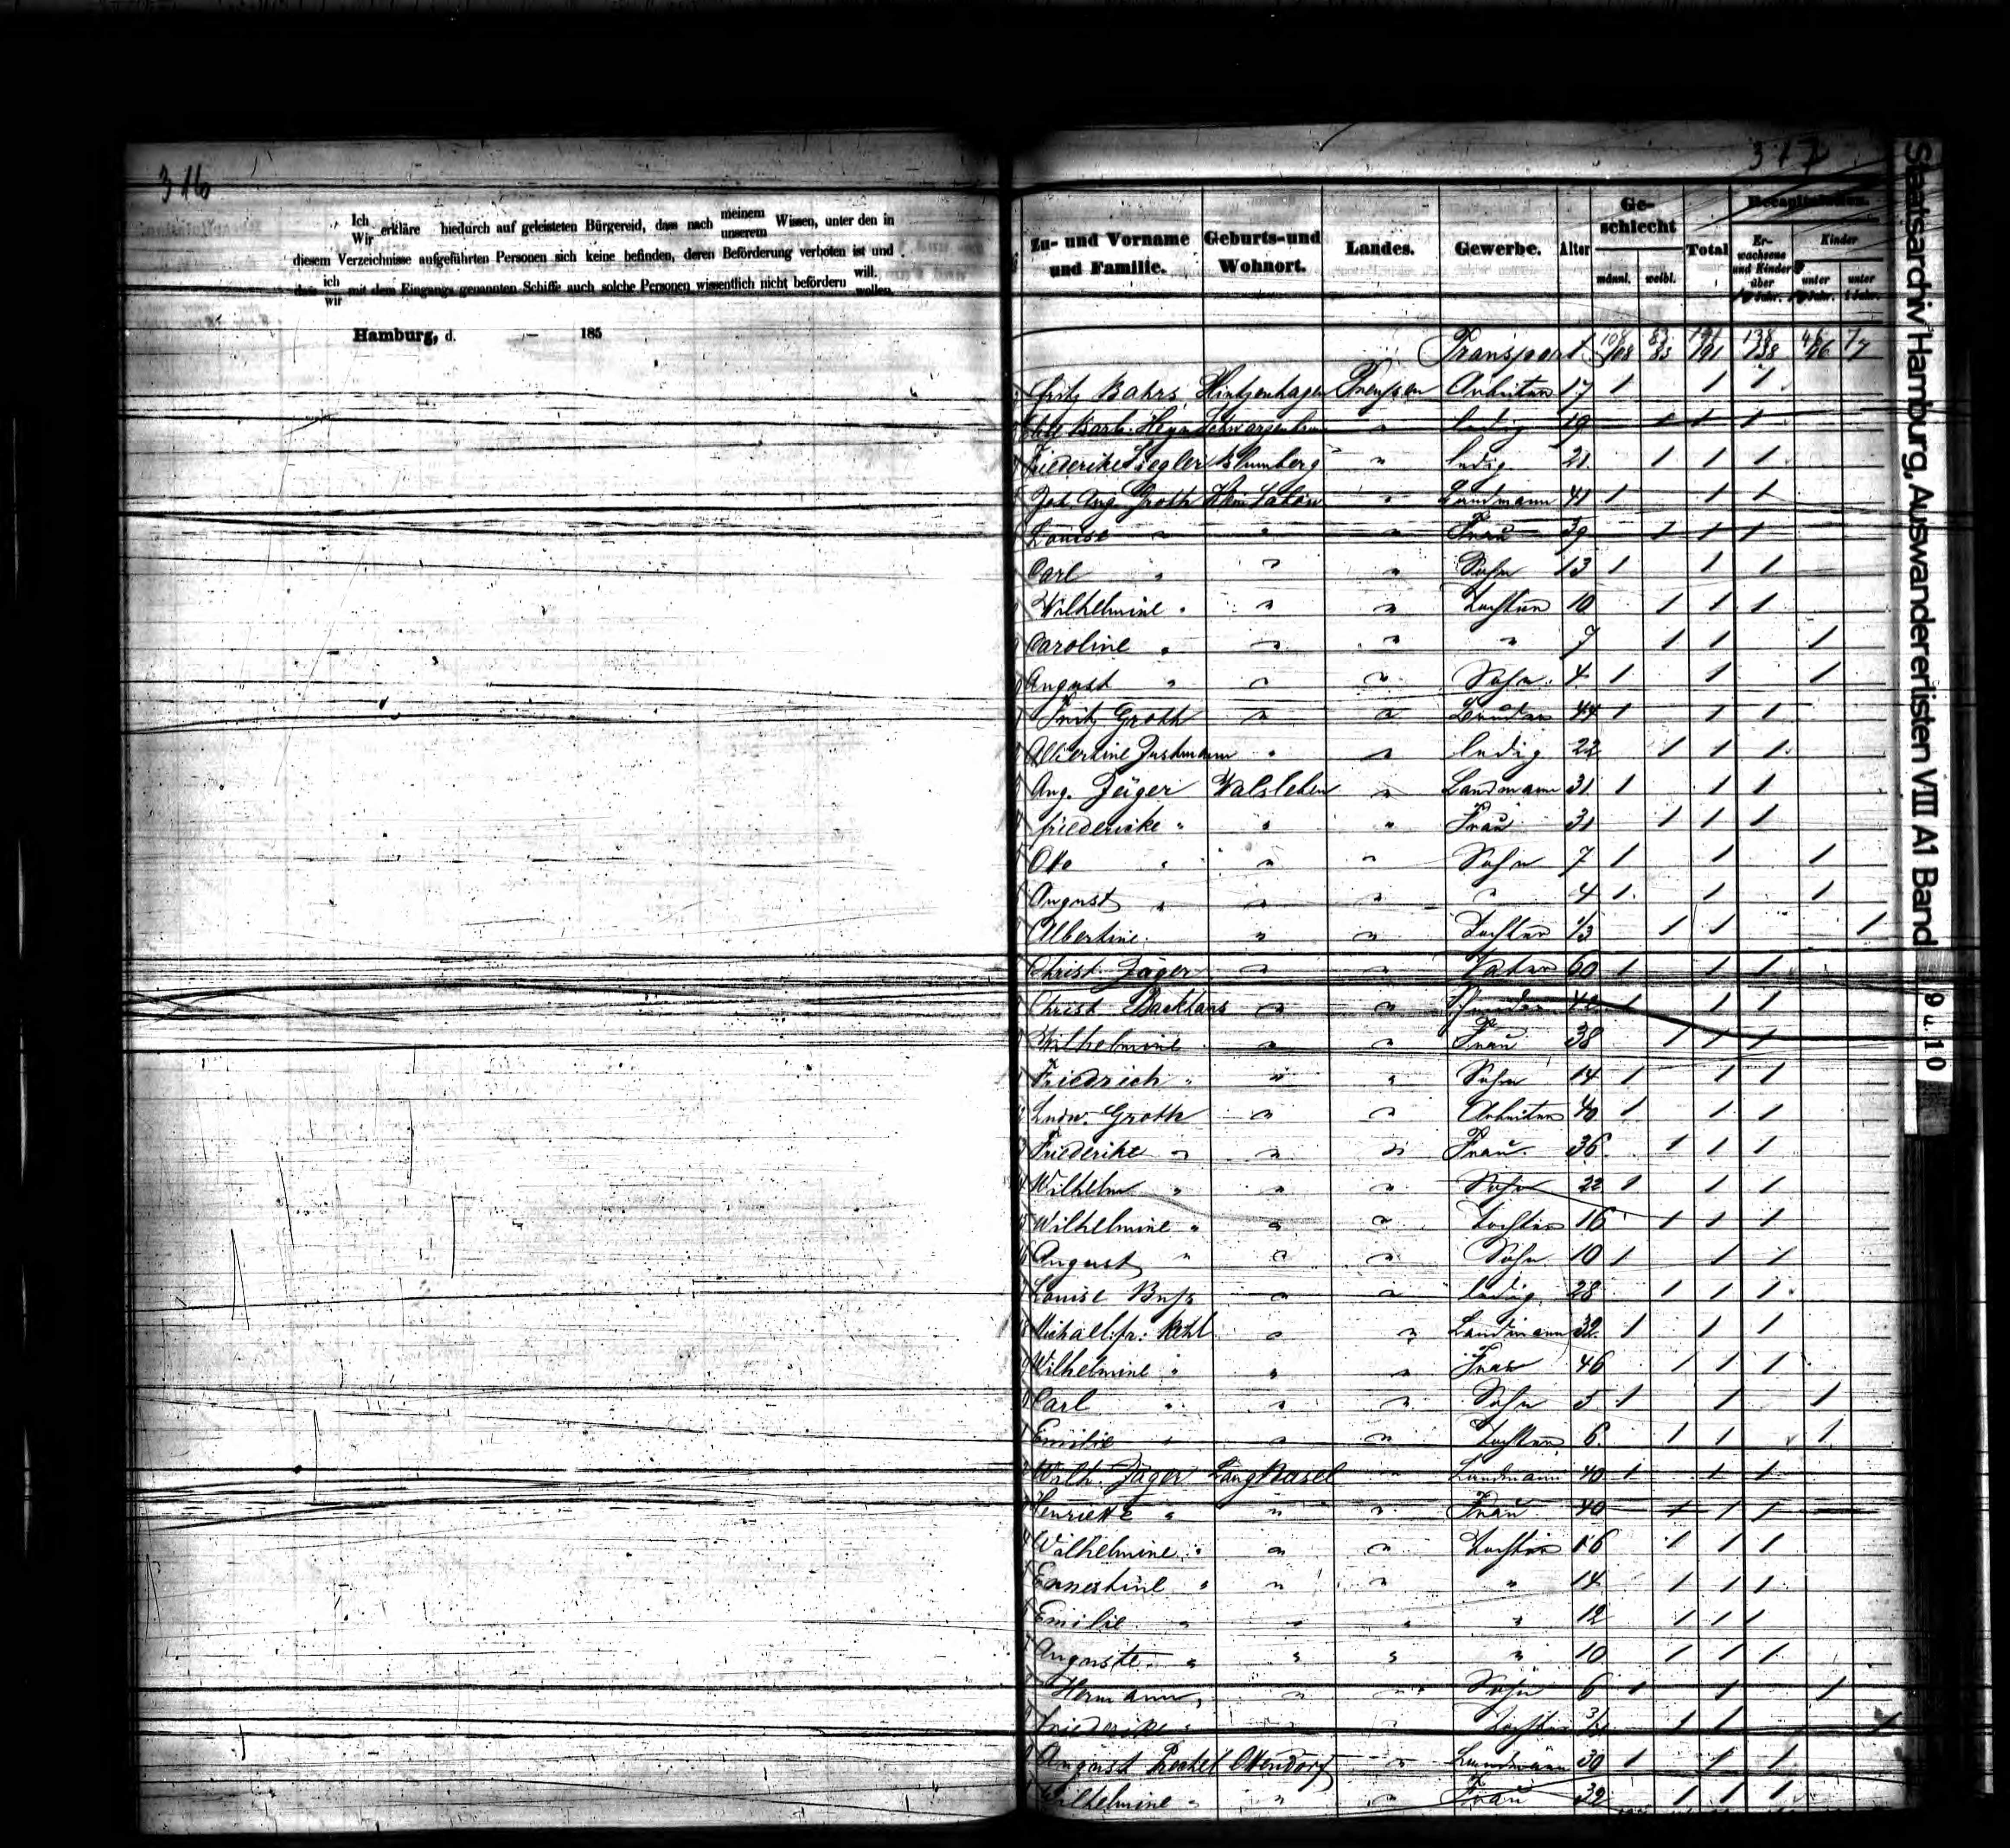 316
317
Ich
Wir erkläre hiedurch auf geleisteten Bürgereid, dass nach meinem
unserem Wissen, unter den in
diesem Verzeichnisse aufgeführten Personen sich keine befinden, deren Beförderung verboten ist und
dass ich
wir mit dem Eingangs genannten Schiffe auch solche Personen wissentlich nicht befördern will.
wollen.
Hamburg, d. – 185
Zu- und Vorname und Familie. Geburts- und Wohnort. Landes. Gewerbe. Alter Geschlecht männl. weibl. Total Recapitulation. Erwachsene und Kinder über Jahr. Kinder unter Jahr. unter 1 Jahr.
Transport 108 83 191 138 46 7
Fritz Bahrs Hintzenhagen Preussen Arbeiter 17 1 1 1
Barb. Heyn " ledig 19 1 1 1
Friederike Ziegler Blumberg " ledig 21 1 1 1
Joh. Aug. Groth Klein " Landmann 41 1 1 1
Louise " " " Frau 39 1 1 1
Carl " " " Sohn 13 1 1 1
Wilhelmine " " " Tochter 10 1 1 1
Caroline " " " " 7 1 1 1
August " " " Sohn 4 1 1 1
Fritz Groth " " Bruder 44 1 1 1
Albertine " " ledig 22 1 1 1
Aug. Jäger Walsleben " Landmann 31 1 1 1
Friedericke " " " Frau 31 1 1 1
Otto " " " Sohn 7 1 1 1
August " " " " 4 1 1 1
Albertine " " Tochter 1 1 1
Christ. Jäger " " Vater 60 1 1 1
Christ. Backhaus " " 1 1 1
Wilhelmine " " Frau 38 1 1 1
Friedrich " " " Sohn 14 1 1 1
Ludw. Groth " " Arbeiter 40 1 1 1
Friederike " " " Frau 36 1 1 1
Wilhelm " " " Sohn 22 1 1 1
Wilhelmine " " " Tochter 16 1 1 1
August " " " Sohn 10 1 1 1
Louise Buss " " ledig 28 1 1 1
Michael fr. Kehl " " Landmann 32 1 1 1
Wilhelmine " " " Frau 46 1 1 1
Carl " " " Sohn 5 1 1 1
Emilie " " " Tochter 6 1 1 1
Wilh. Jäger Langkasel " Landmann 40 1 1 1
Henriette " " " Frau 40 1 1 1
Wilhelmine " " " Tochter 16 1 1 1
Ernestine " " " " 14 1 1 1
Emilie " " " " 12 1 1 1
Auguste " " " " 10 1 1 1
Hermann " " " Sohn 6 1 1 1
Friederike " " " Tochter 1 1 1
August Ottendorf " Landmann 30 1 1 1
Wilhelmine " " " Frau 32 1 1 1
Staatsarchiv Hamburg, Auswandererlisten VIII A1 Band 9 u. 10